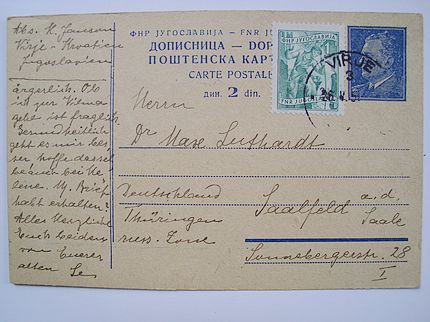 Abs. K. Janson
Virje - Kroatien
Jugoslavien
ФНР ЈУГОСЛАВИЈА - FNR
ДОПИСНИЦА - DOP
ПОШТЕНСКА КАР
CARTE POSTALE
дин. 2 din.
ЈУГОСЛАВИЈА
FNR
VIRJE
3
ärgerlich. Ob
ist zur Vilma
gehe ist fraglich.
Gesundheitlich
geht es mir bes,
ser hoffe dassel
be auch bei He
lene. M. Brief
habt erhalten?
Alles Herzliche
Euch beiden
von Eurer
alten
Herrn
Dr Max Luthardt
Deutschland
Thüringen
russ. Zone
Saalfeld a. d.
Saale
Sonnebergerstr. 28
I